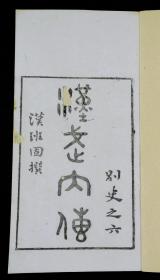 別史之六
漢武內傳
漢班固撰